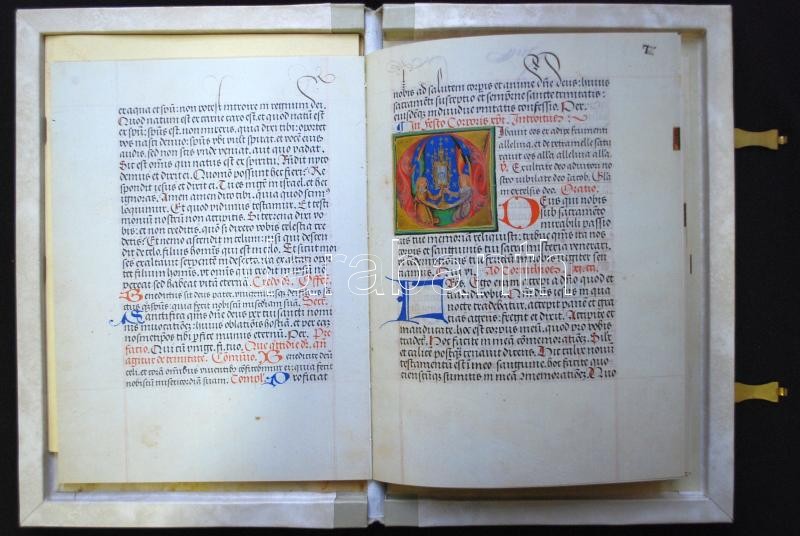 et aqua et spu: non potest introire in regnum dei.
Quod natum est ex carne caro est. et quod natum est
ex spu: spus est. non mireris quia dixi tibi: oportet
vos nasci denuo. spus vbi vult spirat. et vocē eius
audis. sed non scis vnde veniat. aut quo vadat.
Sic est omīs qui natus est ex spiritu. Rñdit nyco
demus et dixit ei. Quomodo possunt hec fieri: Re
spondit iesus et dixit ei. Tu es mgr̄ in israel. et hec
ignoras. Amen amen dico tibi. quia quod scim9
loquimur. Et quod vidimus testamur. Et testi
monium nostrū non accipitis. Si terrena dixi vo
bis: et non creditis. quō si dixero vobis celestia cre
detis: Et nemo ascendit in celum: nisi qui descen
dit de celo. filius hominis qui est in celo. Et sicut moi
ses exaltavit serpentē in deserto. ita exaltari opor
tet filium hominis. vt omīs qui credit in ipsum nō
pereat sed habeat vitā eternā. Credo Offer
Benedictus sit deus pater. vnigenitusqz dei filius sā
ctus quoqz spūs. quia fecit nobiscū misericordiam suam. Secr.
Sanctifica qs dñe deus per tui sancti nomi
nis invocationē: huius oblationis hostiā. et per eaz
nosmetipos tibi pfice munus eternū. Per. Pre
facio. Qui cū vnige. fi. tuo. Que quottidie dr. qn̄
agitur de trinitate. Cōmunio. Benedicimꝰ deū
celi. et corā omnibus viventibꝰ cōfitebimur ei: quia fecit
nobiscū misericordiam suam. Compl. Proficiat
7
nobis ad salutem corpis et anime dñe deus: huius
sacramēti susceptio et sempiterne sancte trinitatis:
eiusdēqz individue vnitatis confessio. Per.
In festo Corporis xpi. Introitus
Cibavit eos ex adipe frumenti
alleluia. et de petra melle satu
ravit eos alleluia alleluia.
v. Exultate deo adiutori no
stro iubilate deo iacob. Gla
in excelsis deo. Oratio.
Deus qui nobis
sub sacramēto
mirabili passio
nis tue memoriā reliquisti: tribue qs ita nos
corpis et sanguinis tui sacra misteria venerari.
vt redemptionis tui fructū in nobis iugiter sen
tiamus. Qui vi. Ad Corintheos. xi. ca.
Fratres. Ego enim accepi a dño quod et
tradidi vobis. Quoniā dñs iesus in qua
nocte tradebatur accepit panē et gra
tias agens. fregit et dixit. Accipite et
manducate. hoc est corpus meū. quod pro vobis
tradet. hoc facite in meā cōmemorationē. Sili
et calicē postqz cenavit dicens. Hic calix novū
testamentū est i meo sanguine. hoc facite quo
ciensctūqz sumitis in meā cōmemorationē. Quo
arabanth